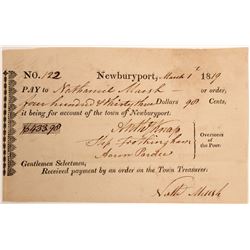 NO. 122 Newburyport, March 1 1819
PAY to Nathaniel Marsh or order,
four hundred & thirty three Dollars 98 Cents,
it being for account of the town of Newburyport.
$433.98
Overseers of the Poor.
Gentlemen Selectmen,
Received payment by an order on the Town Treasurer:
Nathl Marsh